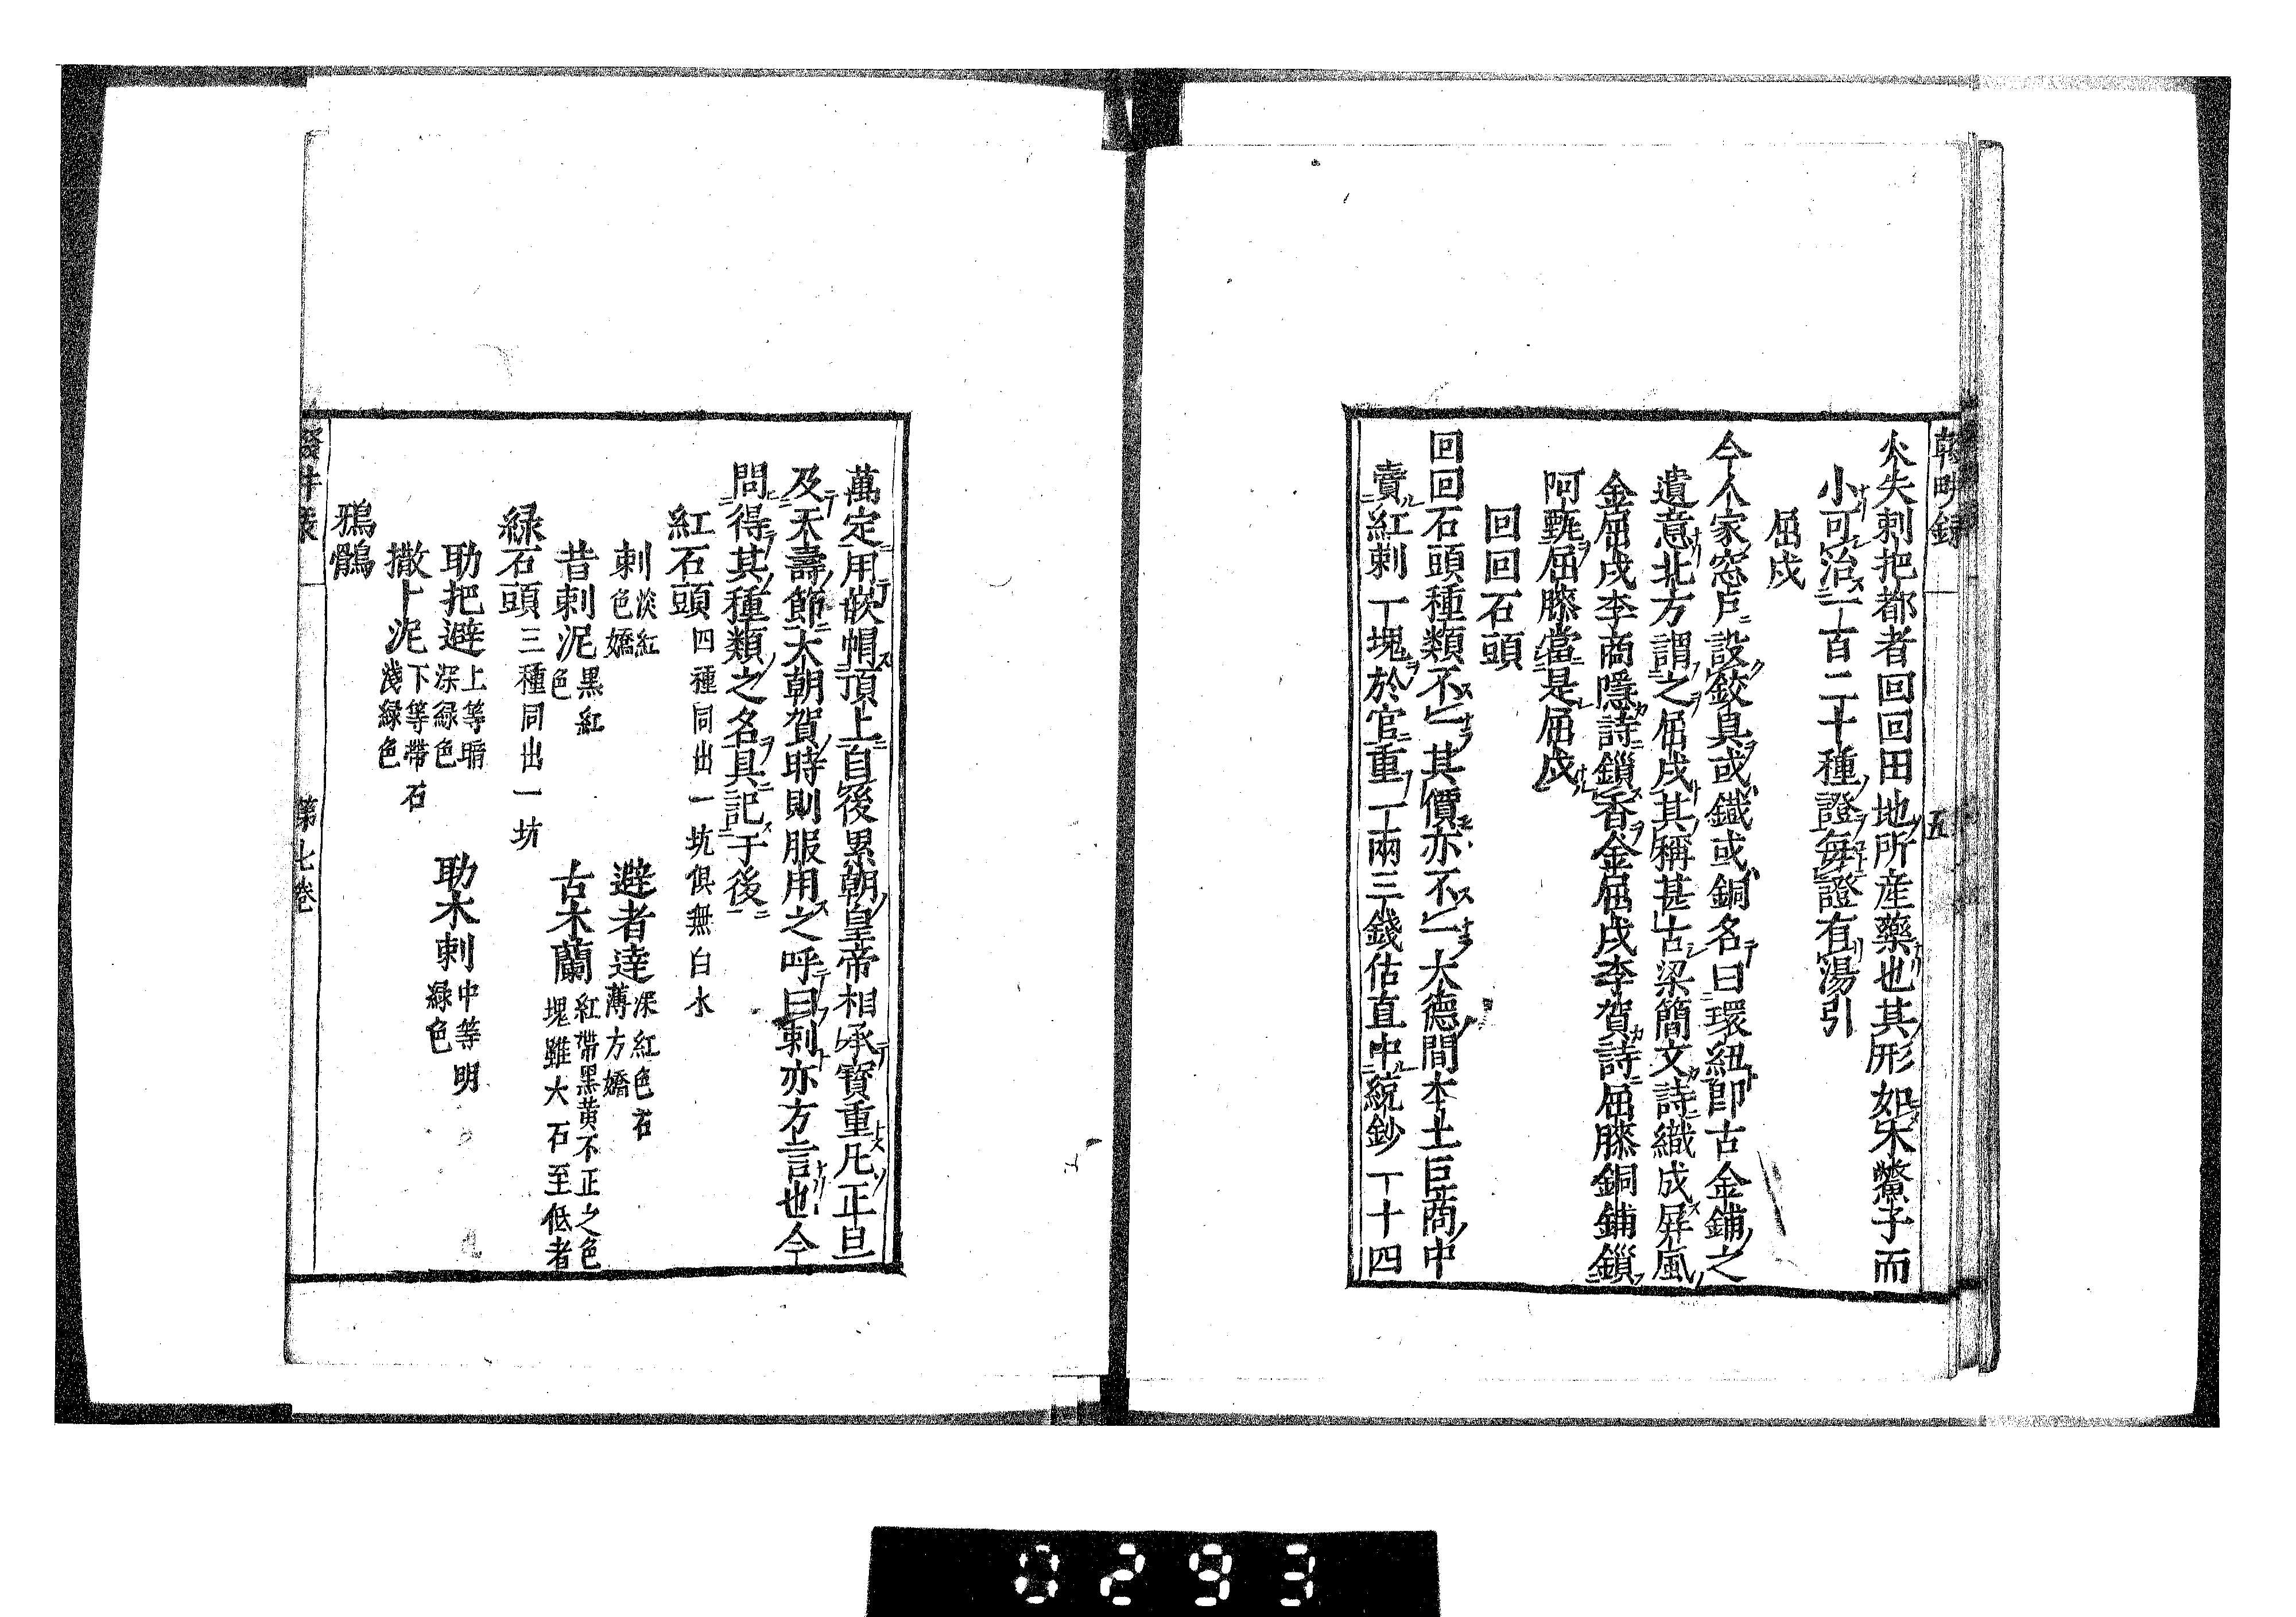 輟畊録
五
火失刺把都者回回田地所産藥也其形如木鱉子而
小可治一百二十種證每證有湯引
屈戍
今人家窓戶設鉸具或鐵或銅名曰環紐即古金鋪之
遺意北方謂之屈戍其稱甚古梁簡文詩織成屏風
金屈戍李商隱詩鎖香金屈戍李賀詩屈膝銅鋪鎖
阿甄屈膝當是屈戍
回回石頭
回回石頭種類不一其價亦不一大德間本土巨商中
賣紅刺一塊於官重一兩三錢估直中統鈔一十四
萬定用嵌帽頂上自後累朝皇帝相承寶重凡正旦
及天壽節大朝賀時則服用之呼曰刺亦方言也今
問得其種類之名具記于後
紅石頭 四種同出一坑俱無白水
刺 淡紅色嬌 避者達 深紅色石薄方嬌
昔刺泥 黒紅色 古木蘭 紅帶黑黄不正之色塊雖大石至低者
緑石頭 三種同出一坑
助把避 上等暗深緑色 助木刺 中等明緑色
撒卜泥 下等帶石淺緑色
鴉鶻
第七巻